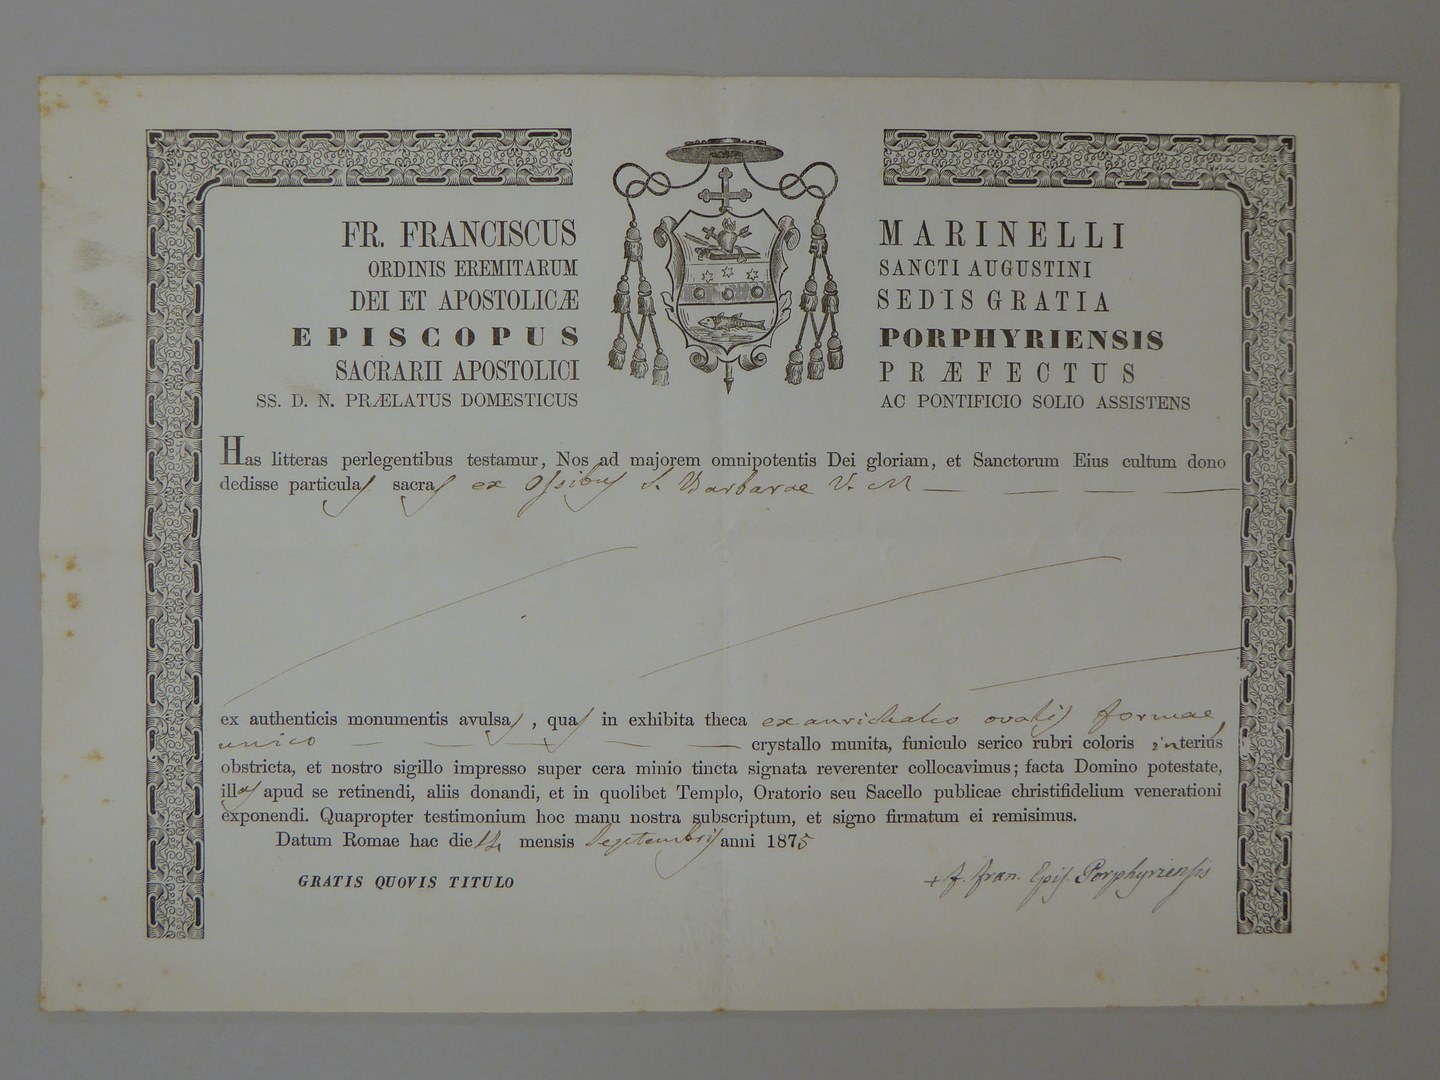 FR. FRANCISCUS MARINELLI
ORDINIS EREMITARUM SANCTI AUGUSTINI
DEI ET APOSTOLICÆ SEDIS GRATIA
EPISCOPUS PORPHYRIENSIS
SACRARII APOSTOLICI PRÆFECTUS
SS. D. N. PRÆLATUS DOMESTICUS AC PONTIFICIO SOLIO ASSISTENS
Has litteras perlegentibus testamur, Nos ad majorem omnipotentis Dei gloriam, et Sanctorum Eius cultum dono
dedisse particulas sacras ex Ossibus S. Barbarae V. M
ex authenticis monumentis avulsas, quas in exhibita theca ex aurichalco ovalis formae,
unico crystallo munita, funiculo serico rubri coloris interius
obstricta, et nostro sigillo impresso super cera minio tincta signata reverenter collocavimus; facta Domino potestate,
illas apud se retinendi, aliis donandi, et in quolibet Templo, Oratorio seu Sacello publicae christifidelium venerationi
exponendi. Quapropter testimonium hoc manu nostra subscriptum, et signo firmatum ei remisimus.
Datum Romae hac die mensis Septembris anni 1875
GRATIS QUOVIS TITULO
+ F. Fran. Epis. Porphyriensis